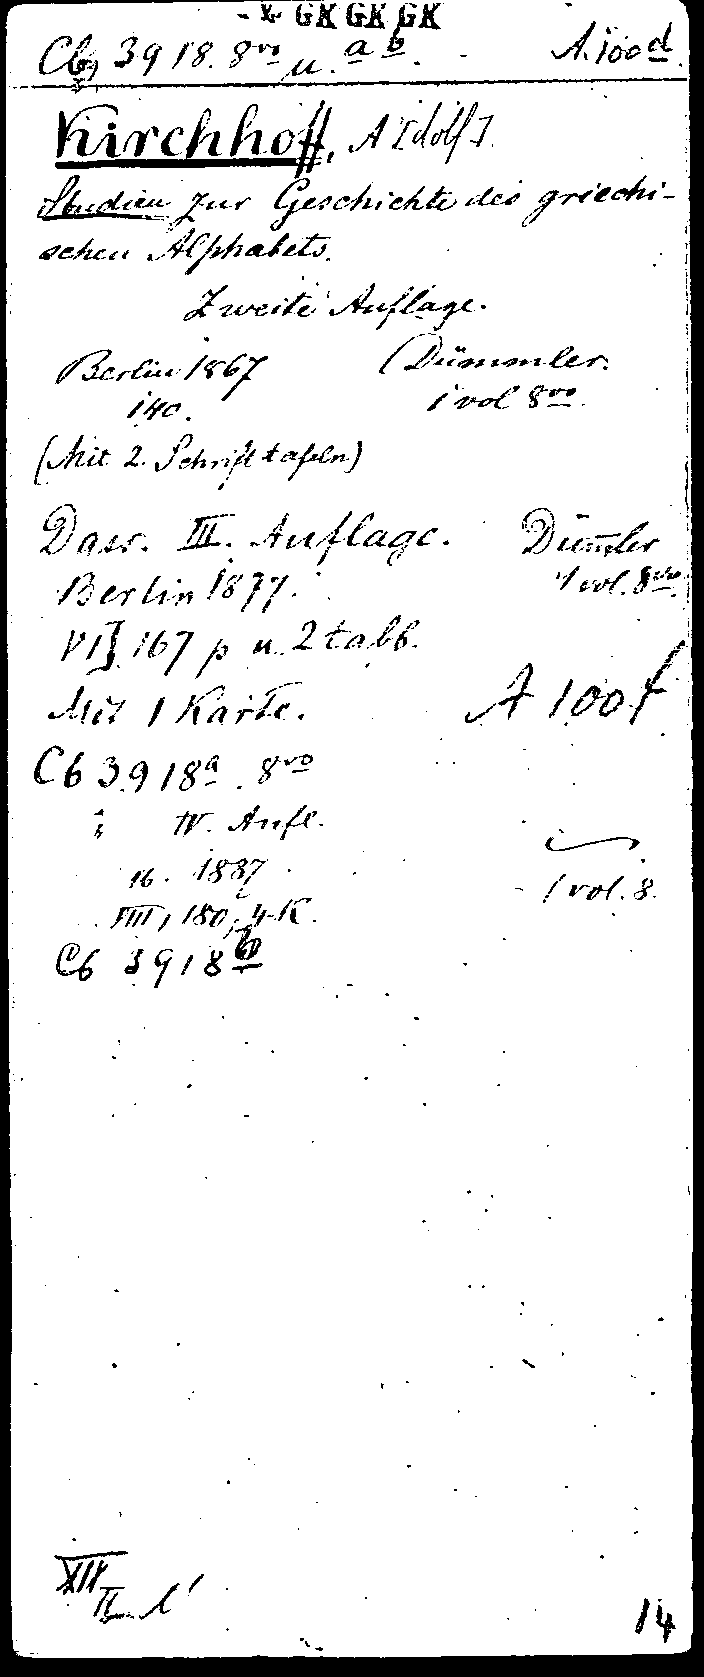 GK GK GK
Cb 3918. 8vo u. a b. A. 100d
Kirchhoff, A[dolf].
Studien zur Geschichte des griechi-
schen Alphabets.
Zweite Auflage.
Berlin 1867 Dümmler.
140. 1 vol 8vo.
(Mit 2. Schrifttafeln)
Dass. III. Auflage. Düm̄ler
Berlin 1877. 1 vol. 8vo.
VI], 167 p u. 2 tabb.
Mit 1 Karte. A 100f
Cb 3918a. 8vo
" IV. Aufl.
ib. 1887
VIII, 180, 4 K. 1 vol. 8.
Cb 3918b
14